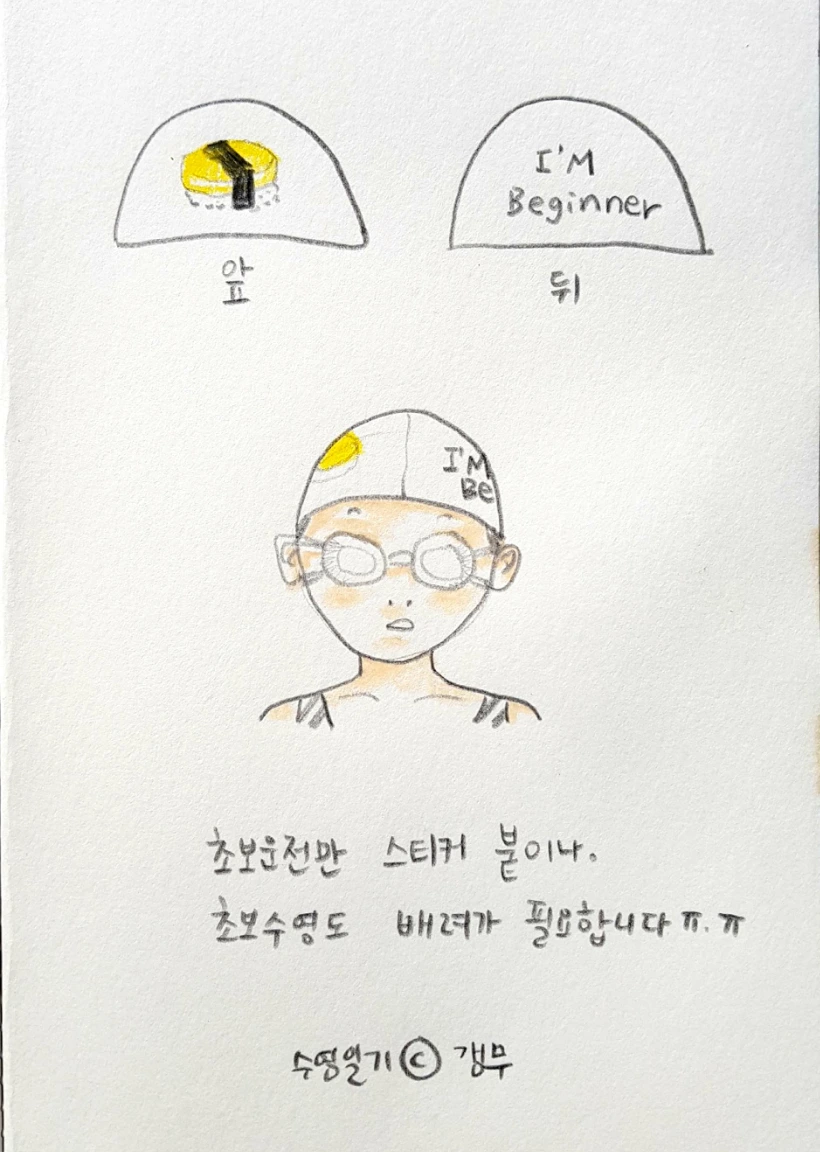 I'M
Beginner
앞
뒤
I'M
Be
초보운전만 스티커 붙이나.
초보수영도 배려가 필요합니다 ㅠ.ㅠ
수영일기 ⓒ 갱무